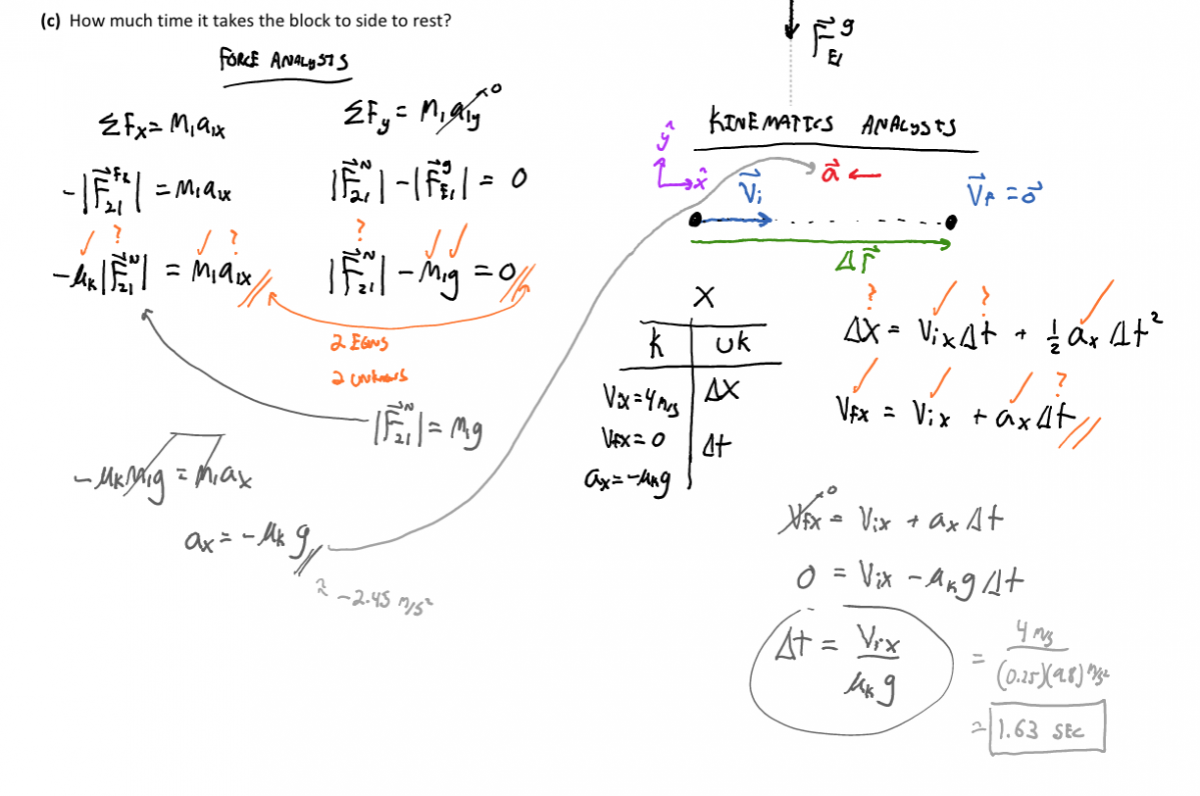 (c) How much time it takes the block to side to rest?
FORCE ANALYSIS
ΣFx = M₁a₁x
-|F⃗₂₁^fk| = M₁a₁x
✓ ? ✓ ?
-μk|F⃗₂₁^N| = M₁a₁x
ΣFy = M₁a₁y → 0
|F⃗₂₁^N| - |F⃗E1^g| = 0
? ✓ ✓
|F⃗₂₁^N| - M₁g = 0
2 EQNS
2 UNKNOWNS
|F⃗₂₁^N| = M₁g
-μk M₁g = M₁ax
ax = -μk g
≈ -2.45 m/s²
F⃗E1^g
KINEMATICS ANALYSIS
ŷ
x̂
V⃗i
a⃗
V⃗f = 0⃗
Δr⃗
X
K | UK
Vix = 4 m/s | ΔX
Vfx = 0 | Δt
ax = -μkg
? ✓ ? ✓
ΔX = Vix Δt + ½ ax Δt²
✓ ✓ ✓ ?
Vfx = Vix + ax Δt
Vfx → 0 = Vix + ax Δt
0 = Vix - μk g Δt
Δt = Vix / μk g = 4 m/s / (0.25)(9.8) m/s²
≈ 1.63 SEC